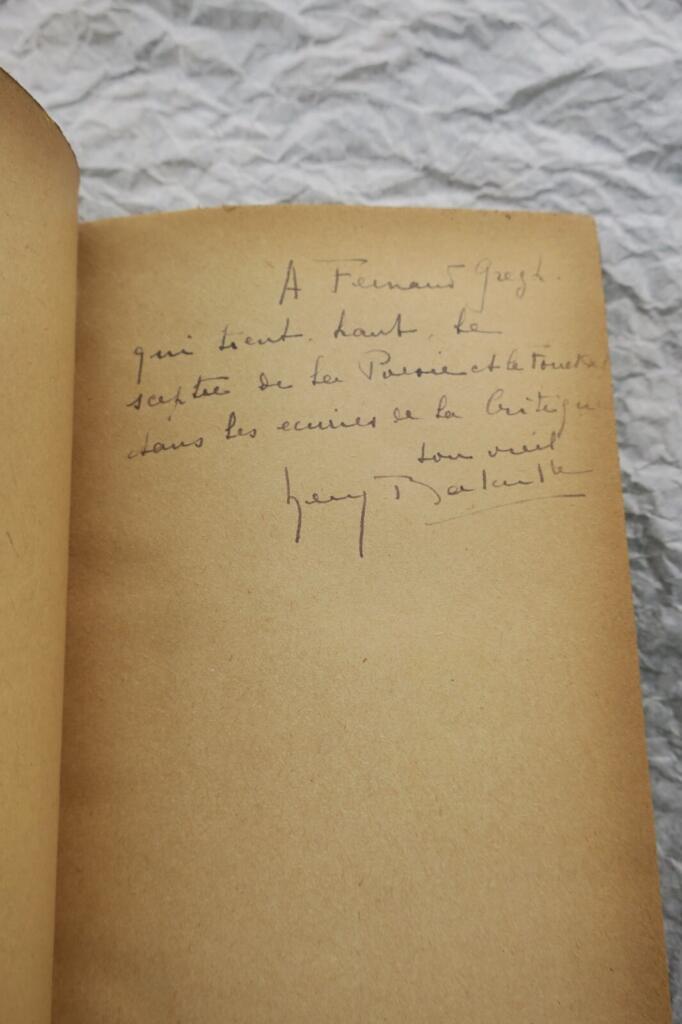 A Fernand Gregh.
qui tient haut, le
sceptre de la Poésie et le fouet
dans les ecuries de la Critique
son vieil
Henry Bataille